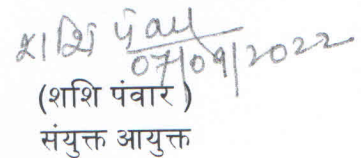 शशि पंवार
07/09/2022
(शशि पंवार )
संयुक्त आयुक्त